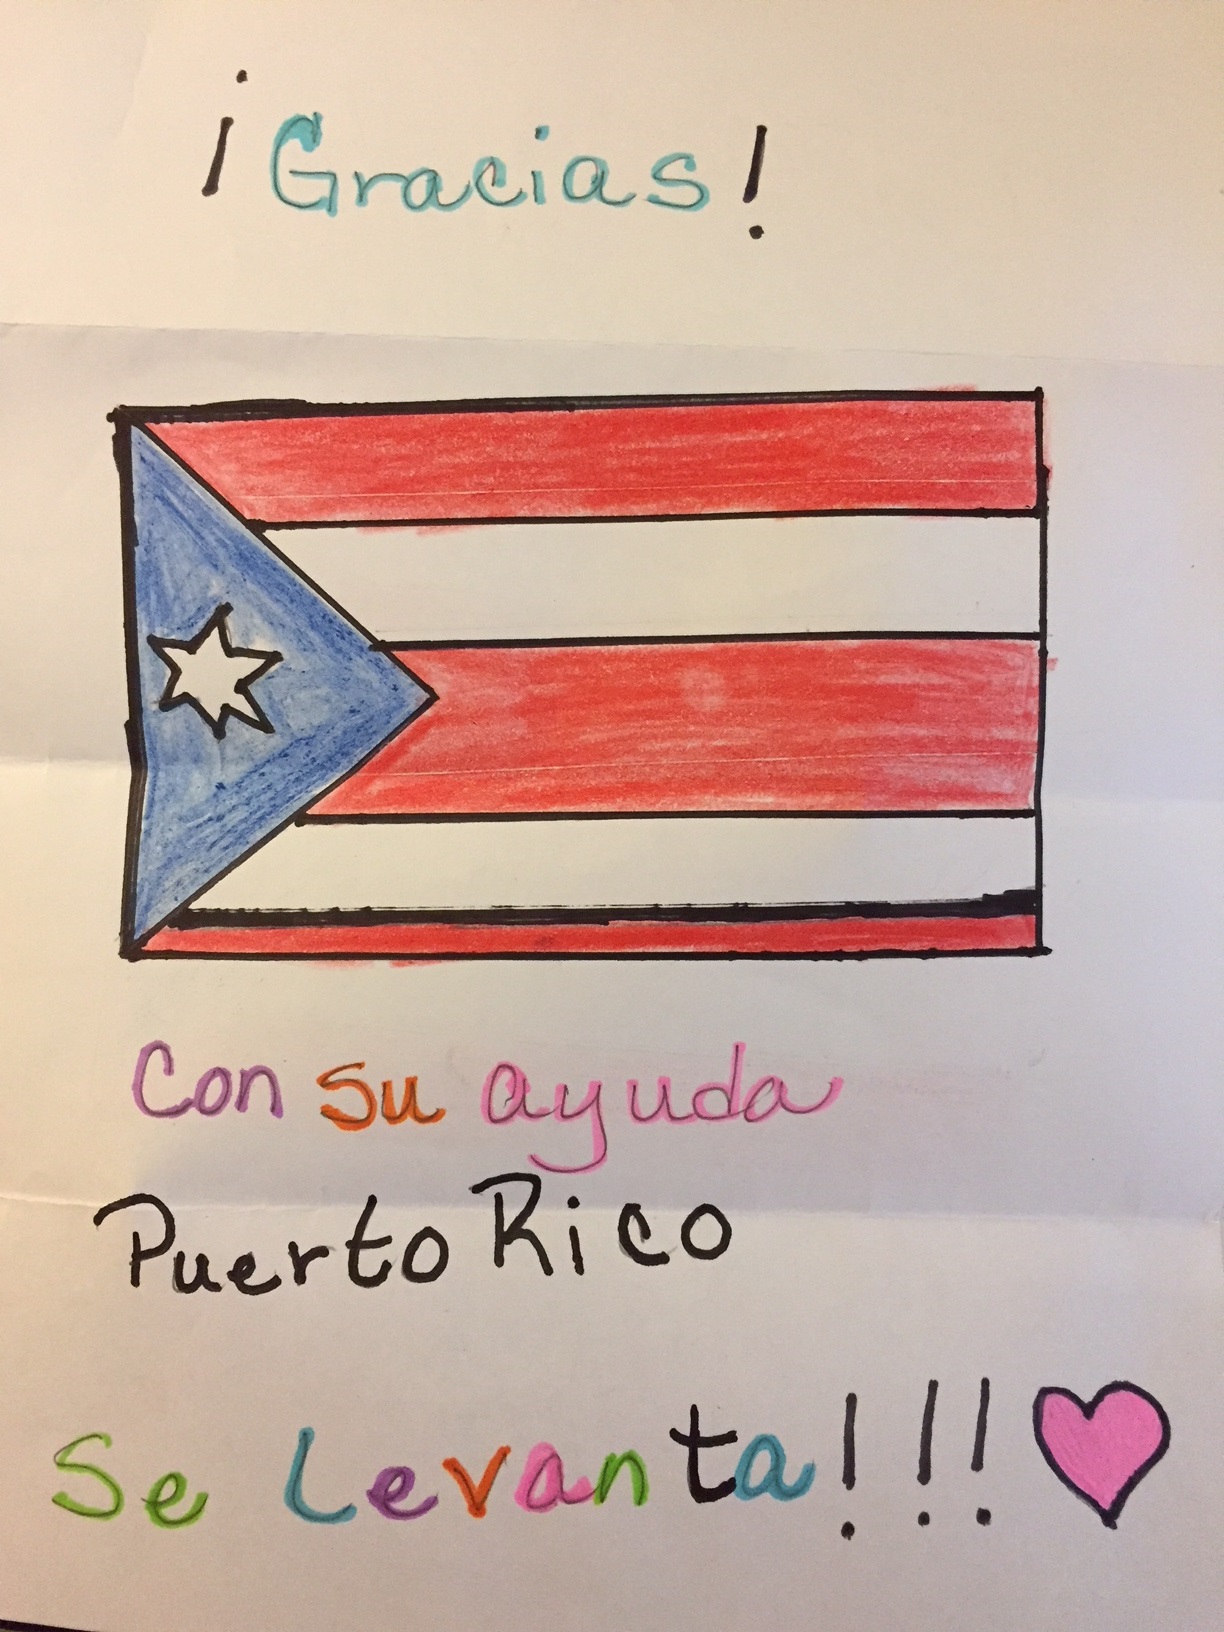 ¡Gracias!
Con su ayuda
Puerto Rico
Se Levanta!!!